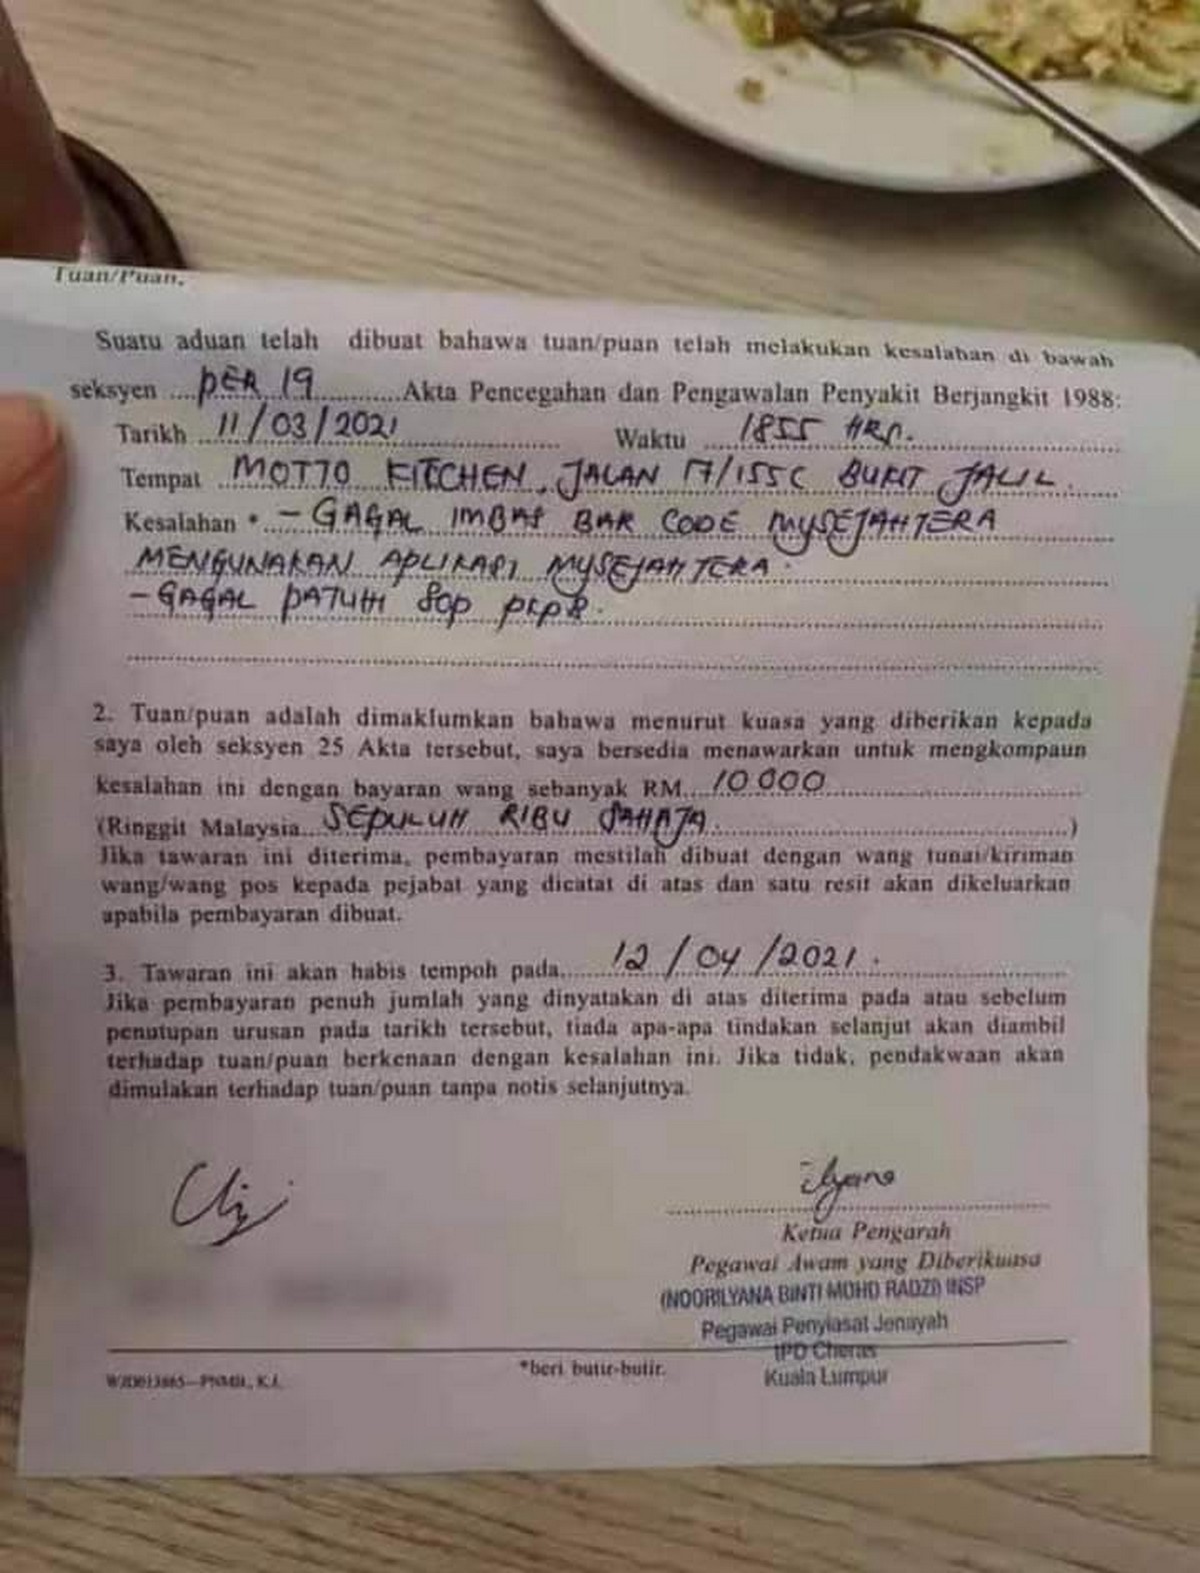 Tuan/Puan,
Suatu aduan telah dibuat bahawa tuan/puan telah melakukan kesalahan di bawah
seksyen ....PER 19............Akta Pencegahan dan Pengawalan Penyakit Berjangkit 1988:
Tarikh ..11/03/2021.................... Waktu ....1855 HRS.............................
Tempat ..MOTTO KITCHEN, JALAN 17/155C BUKIT JALIL......
Kesalahan * ..- GAGAL IMBAS BAR CODE MYSEJAHTERA
MENGUNAKAN APLIKASI MYSEJAHTERA.
- GAGAL PATUHI SOP PKPB.
2. Tuan/puan adalah dimaklumkan bahawa menurut kuasa yang diberikan kepada
saya oleh seksyen 25 Akta tersebut, saya bersedia menawarkan untuk mengkompaun
kesalahan ini dengan bayaran wang sebanyak RM....10 000..............................
(Ringgit Malaysia...SEPULUH RIBU SAHAJA............................................)
Jika tawaran ini diterima, pembayaran mestilah dibuat dengan wang tunai/kiriman
wang/wang pos kepada pejabat yang dicatat di atas dan satu resit akan dikeluarkan
apabila pembayaran dibuat.
3. Tawaran ini akan habis tempoh pada.....12/04/2021.......................
Jika pembayaran penuh jumlah yang dinyatakan di atas diterima pada atau sebelum
penutupan urusan pada tarikh tersebut, tiada apa-apa tindakan selanjut akan diambil
terhadap tuan/puan berkenaan dengan kesalahan ini. Jika tidak, pendakwaan akan
dimulakan terhadap tuan/puan tanpa notis selanjutnya.
ilyana
Ketua Pengarah
Pegawai Awam yang Diberikuasa
(NOORILYANA BINTI MOHD RADZI) INSP
Pegawai Penyiasat Jenayah
IPD Cheras
Kuala Lumpur
*beri butir-butir.
—PNMB., K.L.